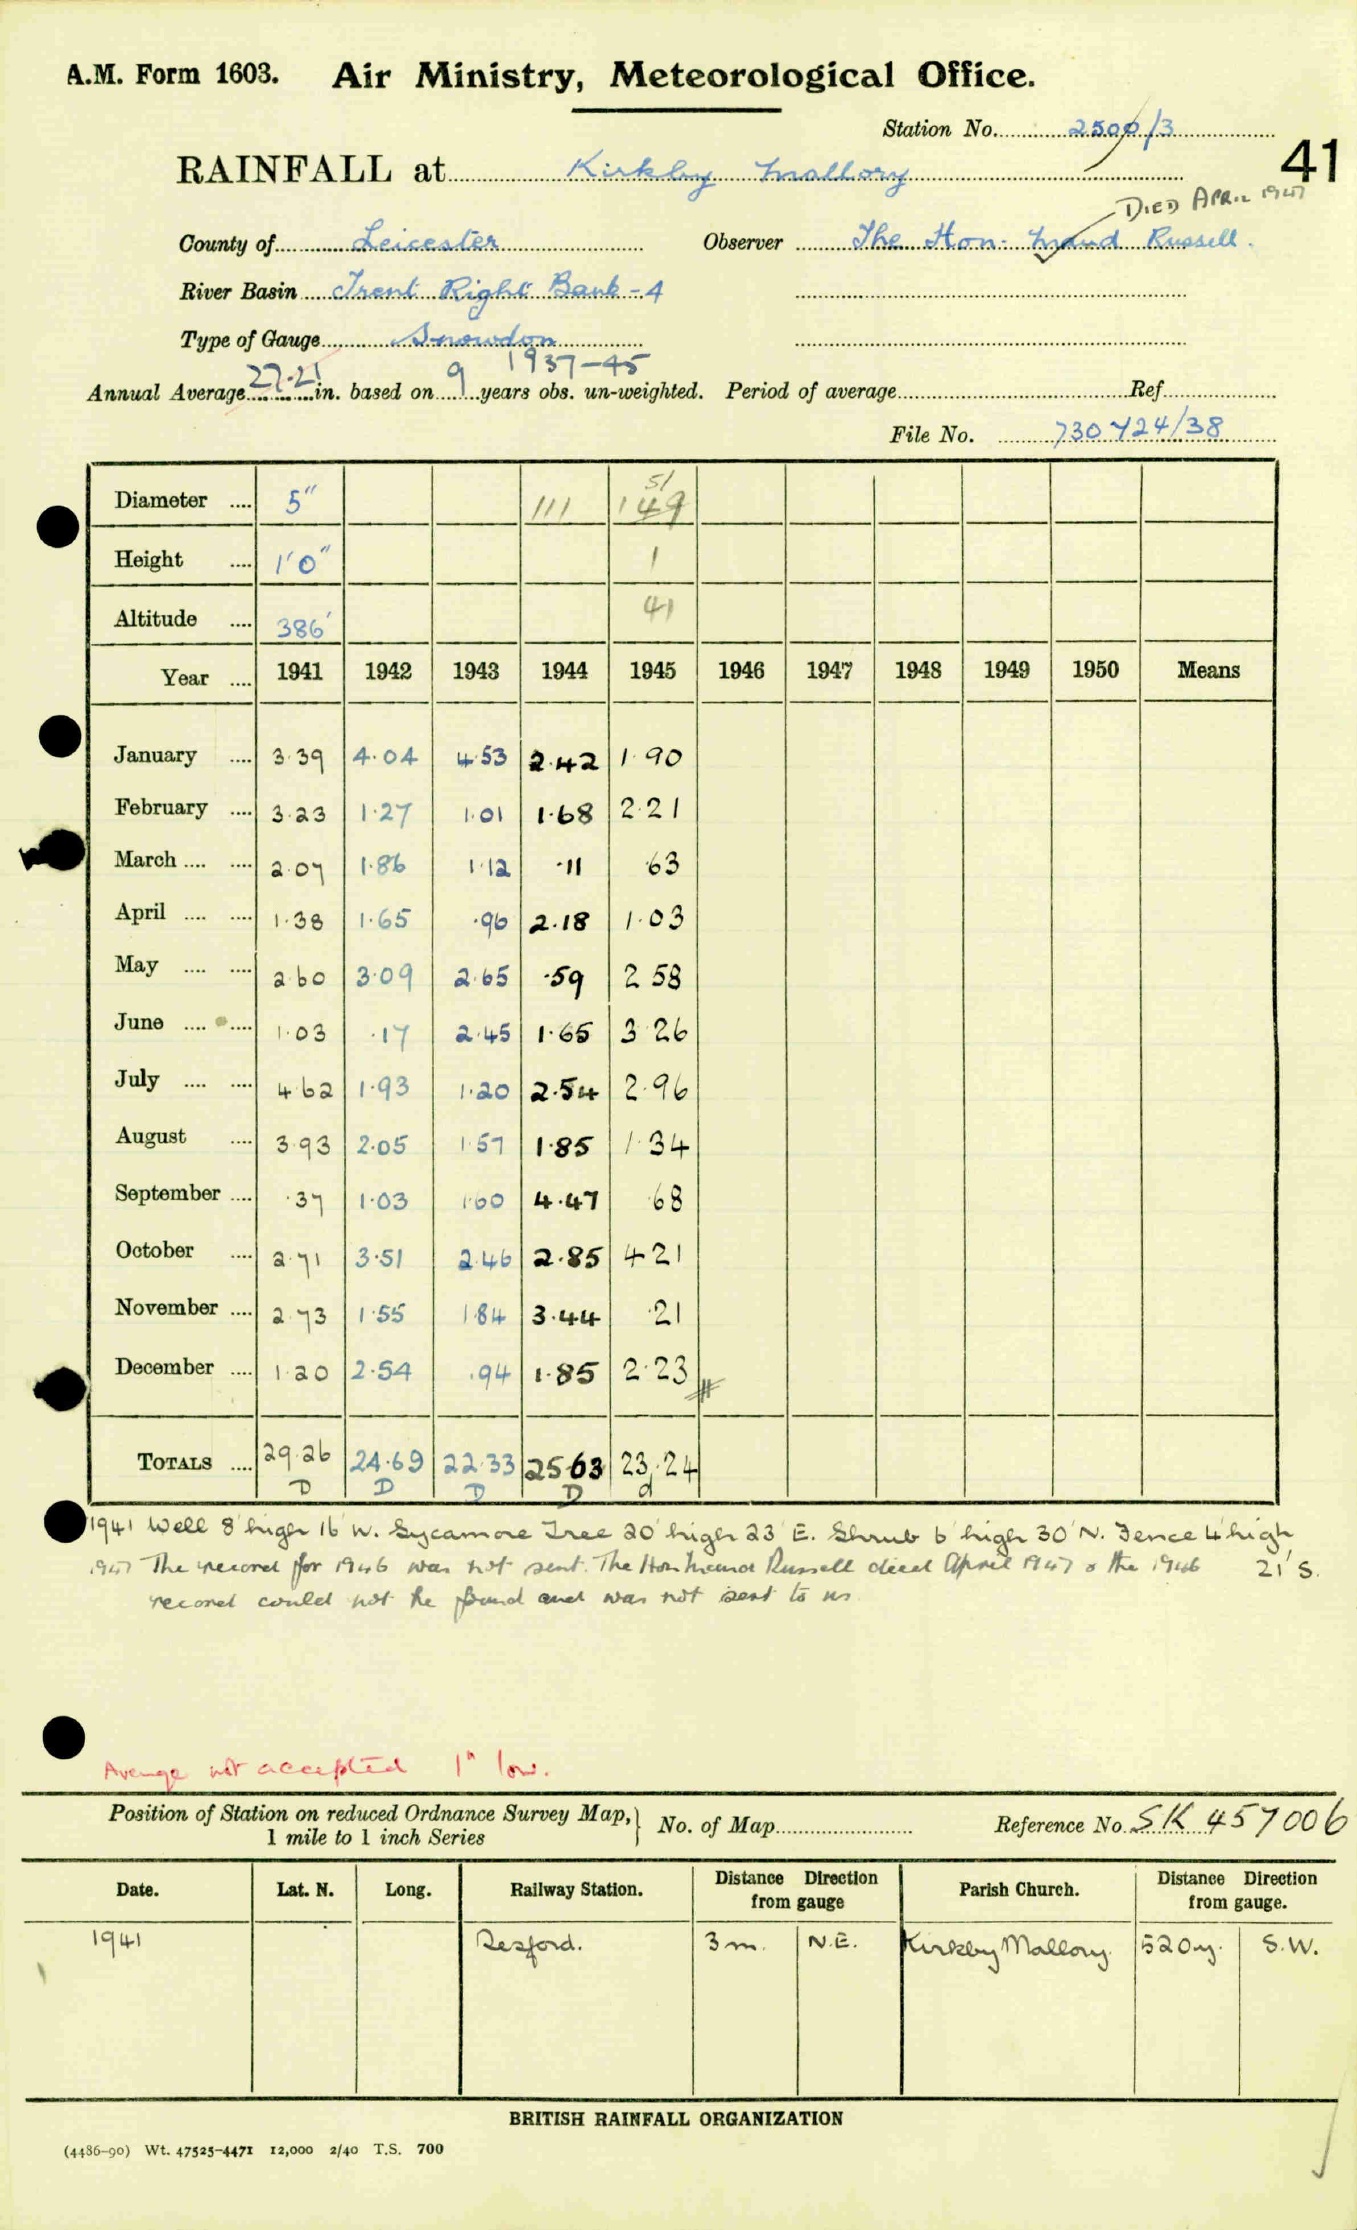 A.M. Form 1603. Air Ministry, Meteorological Office.
Station No. 2500/3
41
RAINFALL at Kirkby Mallory
DIED APRIL 1947
County of Leicester Observer The Hon. Maud Russell.
River Basin Trent Right Bank - 4
Type of Gauge Snowdon
1937-45
Annual Average 27.21 in. based on 9 years obs. un-weighted. Period of average Ref.
File No. 730424/38
Diameter .... 5" 111 149 51
Height .... 1'0" 1
Altitude .... 386' 41
Year .... 1941 1942 1943 1944 1945 1946 1947 1948 1949 1950 Means
January .... 3.39 4.04 4.53 2.42 1.90
February .... 3.23 1.27 1.01 1.68 2.21
March .... .... 2.07 1.86 1.12 .11 .63
April .... .... 1.38 1.65 .96 2.18 1.03
May .... .... 2.60 3.09 2.65 .59 2 58
June .... .... 1.03 .17 2.45 1.65 3 26
July .... .... 4.62 1.93 1.20 2.54 2.96
August .... 3.93 2.05 1.57 1.85 1.34
September .... .37 1.03 1.60 4.47 .68
October .... 2.71 3.51 2.46 2.85 4 21
November .... 2.73 1.55 1.84 3.44 .21
December .... 1.20 2.54 .94 1.85 2.23
TOTALS .... 29.26 24.69 22.33 25.63 23.24
D D D D d
1941 Well 8' high 16' W. Sycamore Tree 20' high 23' E. Shrub 6' high 30' N. Fence 4' high 21' S.
1947 The record for 1946 was not sent. The Hon Maud Russell died April 1947 & the 1946
record could not be found and was not sent to us.
Average not accepted 1" low.
Position of Station on reduced Ordnance Survey Map, 1 mile to 1 inch Series } No. of Map Reference No. SK 457006
Date. Lat. N. Long. Railway Station. Distance Direction from gauge Parish Church. Distance Direction from gauge.
1941 Desford. 3 m. N.E. Kirkby Mallory. 520 y. S.W.
BRITISH RAINFALL ORGANIZATION
(4486-90) Wt. 47525-4471 12,000 2/40 T.S. 700